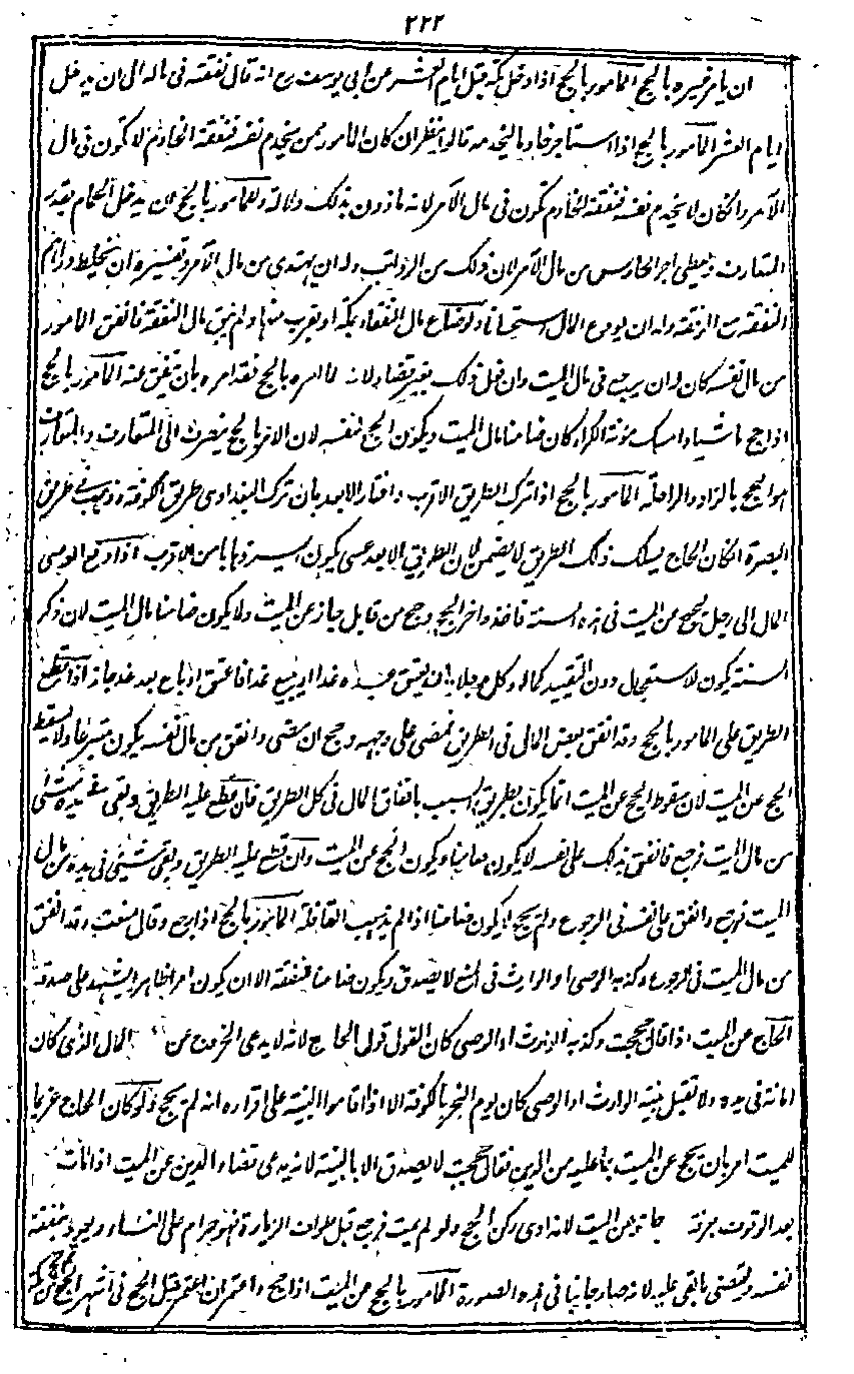 ٢٢٢
ان يامر غيره بالحج المامور بالحج اذا دخل مكة قبل ايام العشر عن ابي يوسف رح انه قال نفقته في ماله الى ان يدخل
ايام العشر المامور بالحج اذا استاجر خادما ليخدمه قالوا ينظر ان كان المامور ممن يخدم نفسه فنفقة الخادم لا تكون في مال
الآمر وان كان لا يخدم نفسه فنفقة الخادم تكون في مال الآمر لانه ماذون بذلك دلالة وللمامور بالحج ان يدخل الحمام بقدر
المتعارف ويعطي اجر الحارس من مال الآمر لان ذلك من الرواتب وله ان من مال الآمر وتفسيره ان يخلط دراهم
النفقة مع الرفقة وله ان يودع المال استحسانا ولو ضاع مال النفقة بمكة او بقرب منها ولم يبق مال النفقة فانفق المامور
من مال نفسه كان له ان يرجع في مال الميت وان فعل ذلك بغير قضاء لانه لما امره بالحج فقد امره بان ينفق عنه المامور بالحج
اذا حج ماشيا وامسك مؤنة الكراء كان ضامنا مال الميت ويكون الحج لنفسه لان الامر بالحج ينصرف الى المتعارف والمتعارف
هو الحج بالزاد والراحلة المامور بالحج اذا ترك الطريق الاقرب واختار الابعد بان ترك البغدادي طريق الكوفة وذهب في طريق
البصرة ان كان الحاج يسلك ذلك الطريق لا يضمن لان الطريق الابعد عسى يكون ايسر ذهابا من الاقرب اذا دفع الوصي
المال الى رجل ليحج عن الميت في هذه السنة فاخذ واخر الحج وحج من قابل جاز عن الميت ولا يكون ضامنا مال الميت لان ذكر
السنة يكون للاستعجال دون التقييد كما لو وكل رجلا بان يعتق عبده غدا او يبيع غدا فاعتق او باع بعد غد جاز اذا قطع
الطريق على المامور بالحج وقد انفق بعض المال في الطريق فمضى على وجهه وحج ان مضى وانفق من مال نفسه يكون متبرعا ولا يسقط
الحج عن الميت لان سقوط الحج عن الميت انما يكون بطريق التسبب بانفاق المال في كل الطريق فان قطع عليه الطريق وبقي في يده شيء
من مال الميت فرجع فانفق ذلك على نفسه لا يكون ضامنا ويكون الحج عن الميت وان قطع عليه الطريق وبقي شيء في يده من مال
الميت فرجع وانفق على نفسه في الرجوع ولم يحج لا يكون ضامنا اذا لم يذهب القافلة المامور بالحج اذا رجع وقال منعت وقد انفق
من مال الميت في الرجوع وكذبه الوصي او الوارث في المنع لا يصدق ويكون ضامنا لنفقته الا ان يكون امرا ظاهرا يشهد على صدقه
الحاج عن الميت اذا قال حججت وكذبه الوارث او الوصي كان القول قول الحاج لانه لا يدعي الخروج عن المال الذي كان
امانة في يده ولا تقبل بينة الوارث او الوصي كان يوم النحر بالكوفة الا اذا اقاموا البينة على اقراره انه لم يحج ولو كان الحاج غريما
للميت امر بان يحج عن الميت بما عليه من الدين فقال حججت لا يصدق الا بالبينة لانه يدعي قضاء الدين عن الميت اذا مات
بعد الوقوف بعرفة جاز عن الميت لانه ادى ركن الحج ولو لم يمت فرجع قبل طواف الزيارة فهو حرام على النساء ويعود بنفقة
نفسه ويقضي ما بقي عليه لانه صار جانيا في هذه الصورة المامور بالحج عن الميت اذا حج واعتمر ان اعتمر قبل الحج في اشهر الحج ثم حج من مكة